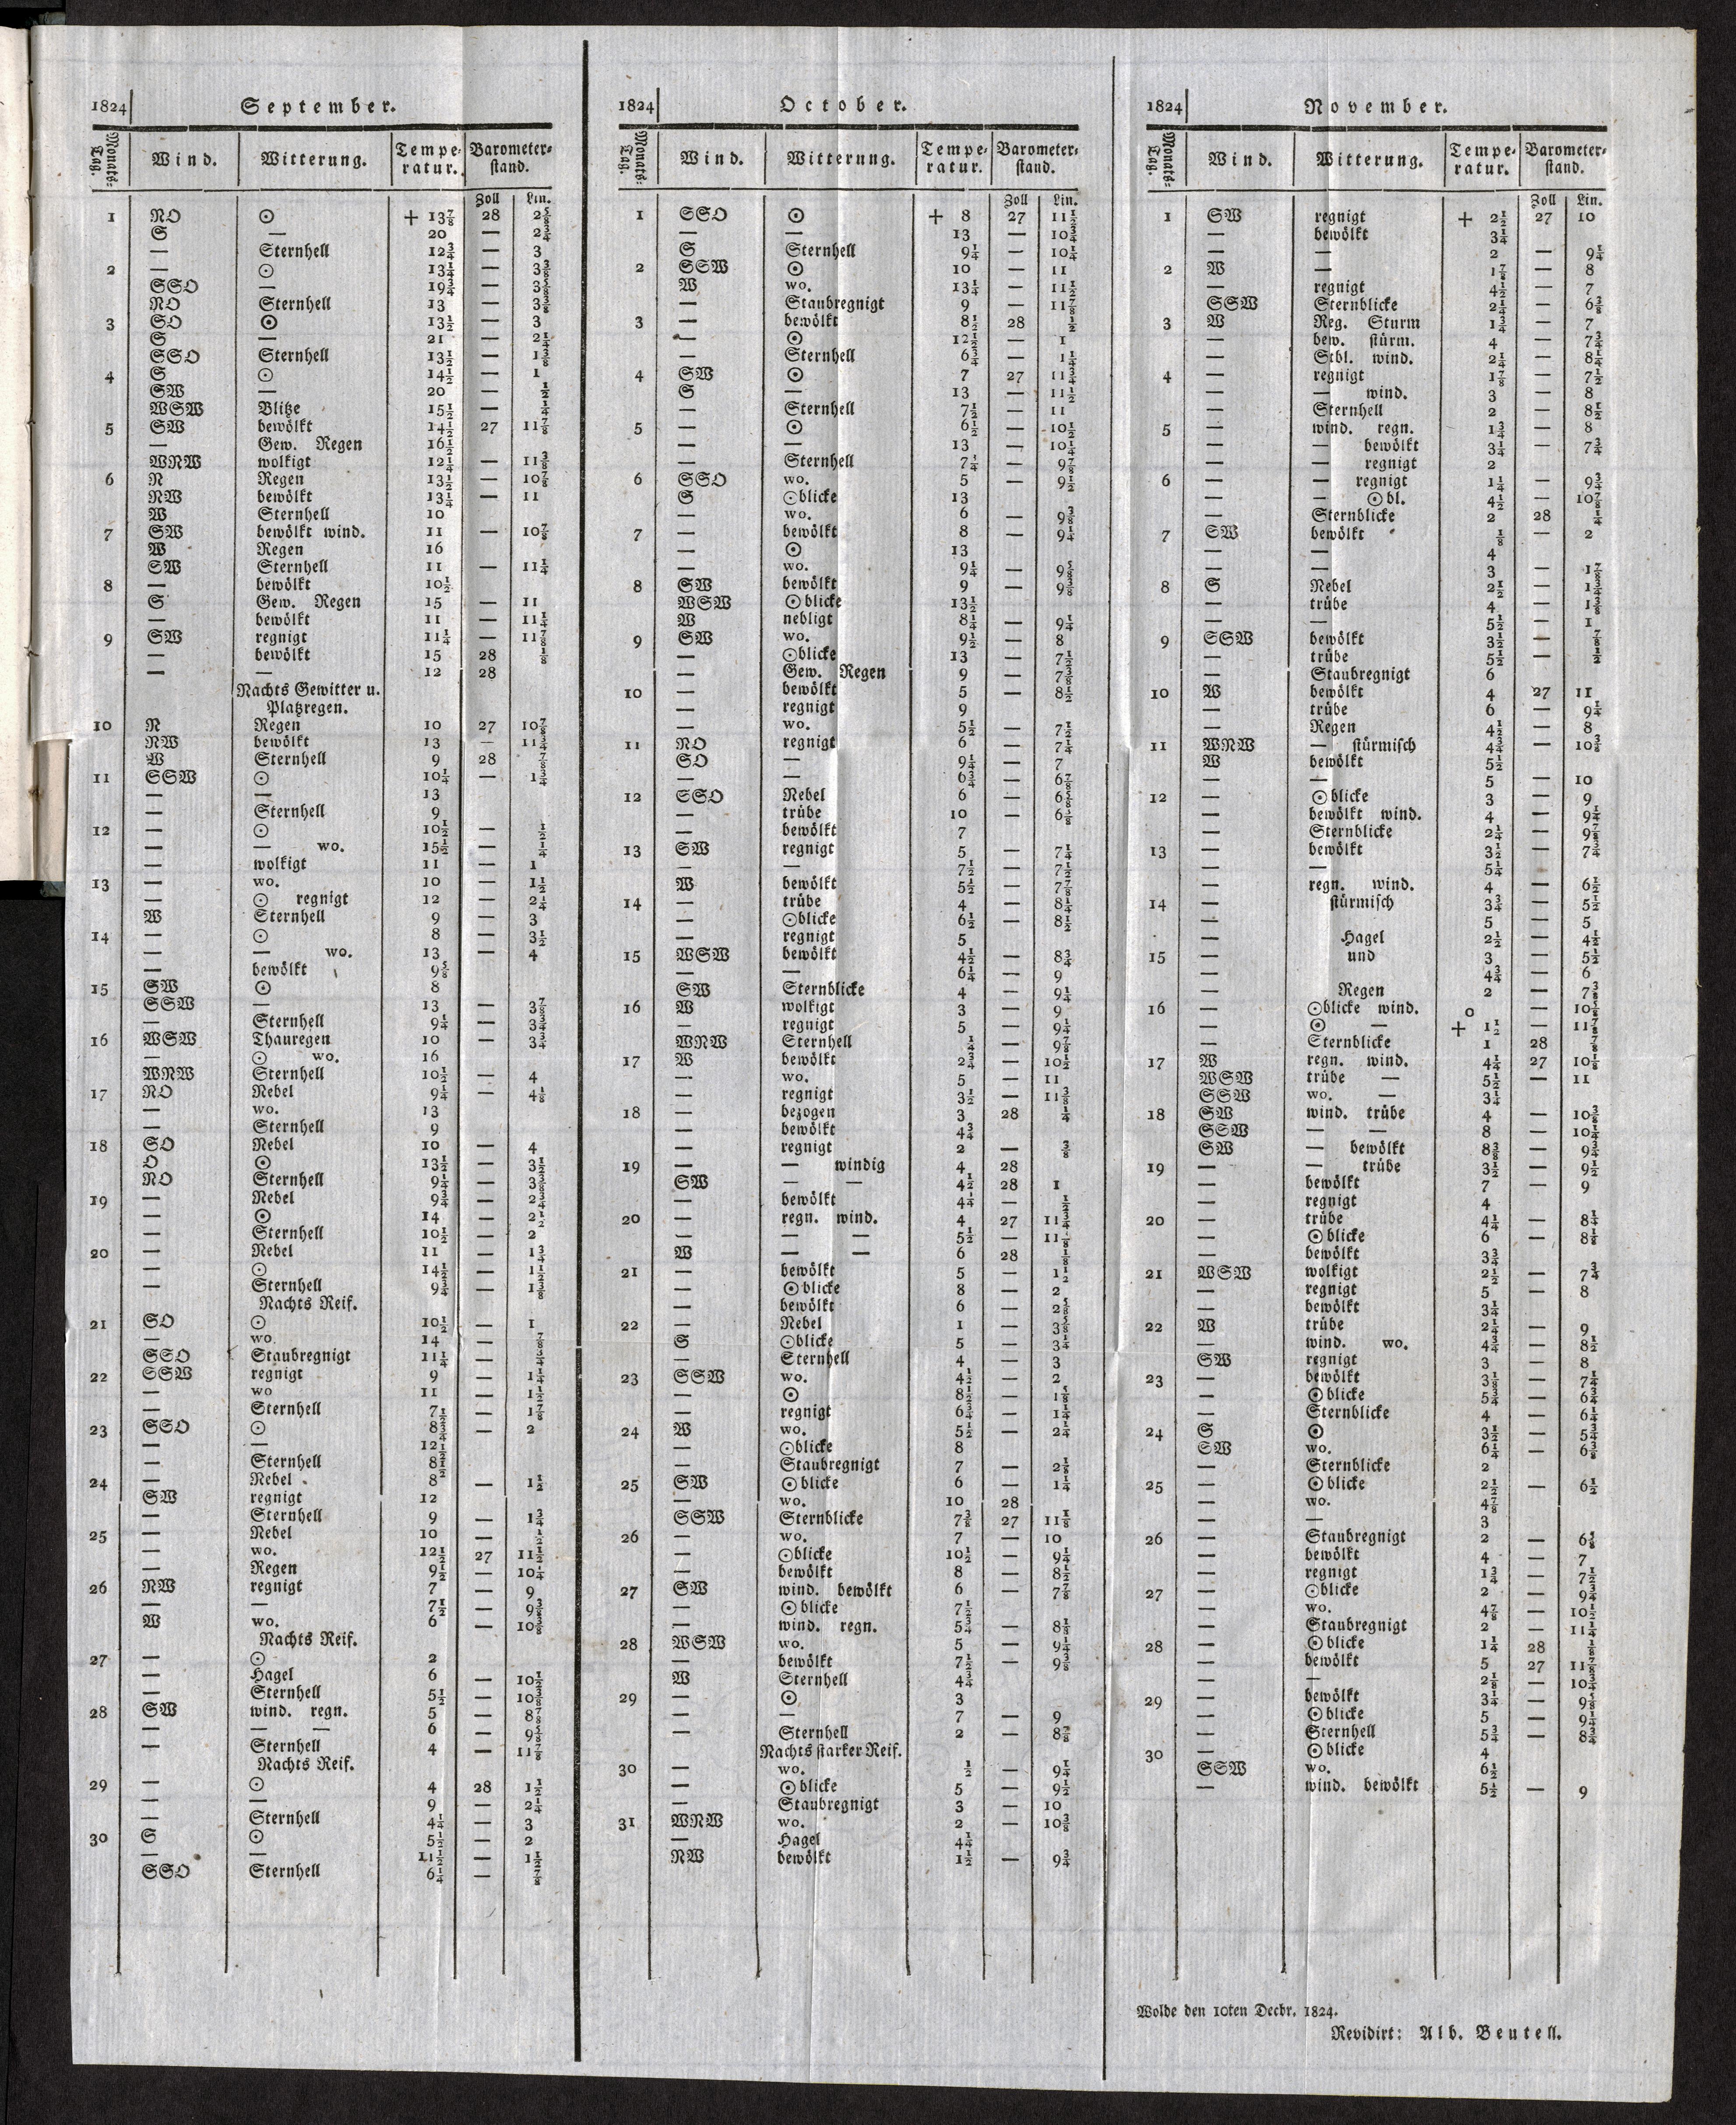 1824 September.
Monats-Tag. Wind. Witterung. Tempe-ratur. Barometer-stand.
Zoll Lin.
1 NO ☉ + 13⅞ 28 2⅝
S — 20 — 2¾
— Sternhell 12¾ — 3
2 — ☉ 13¼ — 3⅜
SSO — 19¾ — 3⅜
NO Sternhell 13 — 3⅜
3 SO ☉ 13½ — 3
S — 21 — 2¼
SSO Sternhell 13½ — 1⅜
4 S ☉ 14½ — 1
SW — 20 — ½
WSW Blitze 15½ — ¼
5 SW bewölkt 14½ 27 11⅞
— Gew. Regen 16½
WNW wolkigt 12¼ — 11⅜
6 N Regen 13½ — 10⅞
NW bewölkt 13¼ — 11
W Sternhell 10
7 SW bewölkt wind. 11 — 10⅞
W Regen 16
SW Sternhell 11 — 11¼
8 — bewölkt 10½
S Gew. Regen 15 — 11
— bewölkt 11 — 11¼
9 SW regnigt 11¼ — 11⅞
— bewölkt 15 28 ⅛
— — 12 28
Nachts Gewitter u.
Platzregen.
10 N Regen 10 27 10⅞
NW bewölkt 13 — 11¾
W Sternhell 9 28 ⅞
11 SSW ☉ 10¼ — 1¾
— — 13
— Sternhell 9
12 — ☉ 10½ — ½
— — wo. 15½ — ¼
— wolkigt 11 — 1
13 — wo. 10 — 1½
— ☉ regnigt 12 — 2¼
W Sternhell 9 — 3
14 — ☉ 8 — 3½
— — wo. 13 — 4
— bewölkt 9⅝
15 SW ☉ 8
SSW — 13 — 3⅞
— Sternhell 9¼ — 3¾
16 WSW Thauregen 10 — 3¾
— ☉ wo. 16
WNW Sternhell 10½ — 4
17 NO Nebel 9¼ — 4⅛
— wo. 13
— Sternhell 9
18 SO Nebel 10 — 4
O ☉ 13½ — 3½
NO Sternhell 9¼ — 3⅜
19 — Nebel 9¾ — 2¾
— ☉ 14 — 2½
— Sternhell 10½ — 2
20 — Nebel 11 — 1¾
— ☉ 14½ — 1½
— Sternhell 9¾ — 1⅜
Nachts Reif.
21 SO ☉ 10½ — 1
— wo. 14 — ⅞
SSO Staubregnigt 11¼ — ¾
22 SSW regnigt 9 — 1¼
— wo 11 — 1½
— Sternhell 7½ — 1⅞
23 SSO ☉ 8¾ — 2
— — 12½
— Sternhell 8½
24 — Nebel 8 — 1½
SW regnigt 12
— Sternhell 9 — 1¾
25 — Nebel 10 — ½
— wo. 12½ 27 11½
— Regen 9½ — 10¼
26 NW regnigt 7 — 9
— — 7½ — 9¾
W wo. 6 — 10⅜
Nachts Reif.
27 — ☉ 2
— Hagel 6 — 10½
— Sternhell 5½ — 10⅜
28 SW wind. regn. 5 — 8⅞
— — — 6 — 9⅝
— Sternhell 4 — 11⅞
Nachts Reif.
29 — ☉ 4 28 1½
— — 9 — 2¼
— Sternhell 4¼ — 3
30 S ☉ 5½ — 2
— — 11½ — 1½
SSO Sternhell 6¼ — ⅞
1824 October.
Monats-Tag. Wind. Witterung. Tempe-ratur. Barometer-stand.
Zoll Lin.
1 SSO ☉ + 8 27 11½
— — 13 — 10¾
S Sternhell 9¼ — 10¼
2 SSW ☉ 10 — 11
W wo. 13¼ — 11½
— Staubregnigt 9 — 11⅞
3 — bewölkt 8½ 28 ½
— ☉ 12½ — 1
— Sternhell 6¾ — 1¼
4 SW ☉ 7 27 11¾
S — 13 — 11½
— Sternhell 7½ — 11
5 — ☉ 6½ — 10½
— — 13 — 10¼
— Sternhell 7¼ — 9⅞
6 SSO wo. 5 — 9½
S ☉blicke 13
— wo. 6 — 9⅜
7 — bewölkt 8 — 9¼
— ☉ 13
— wo. 9¼ — 9⅝
8 SW bewölkt 9 — 9⅜
WSW ☉blicke 13½
W nebligt 8¼ — 9¼
9 SW wo. 9½ — 8
— ☉blicke 13 — 7½
— Gew. Regen 9 — 7⅜
10 — bewölkt 5 — 8½
— regnigt 9
— wo. 5½ — 7½
11 NO regnigt 6 — 7¼
SO — 9¼ — 7
— — 6¾ — 6⅞
12 SSO Nebel 6 — 6⅝
— trübe 10 — 6⅛
— bewölkt 7
13 SW regnigt 5 — 7¼
— — 7½ — 7½
W bewölkt 5½ — 7⅞
14 — trübe 4 — 8¼
— ☉blicke 6½ — 8½
— regnigt 5
15 WSW bewölkt 4½ — 8¾
— — 6¼ — 9
SW Sternblicke 4 — 9¼
16 W wolkigt 3 — 9
— regnigt 5 — 9¼
WNW Sternhell ¼ — 9⅞
17 W bewölkt 2¾ — 10½
— wo. 5 — 11
— regnigt 3½ — 11⅜
18 — bezogen 3 28 ¼
— bewölkt 4¾
— regnigt 2 — ⅜
19 — — windig 4 28
SW — — 4½ 28 1
— bewölkt 4¼ — ½
20 — regn. wind. 4 27 11¾
— — — 5½ — 11⅛
W — — 6 28 ⅛
21 — bewölkt 5 — 1½
— ☉blicke 8 — 2
— bewölkt 6 — 2⅝
22 — Nebel 1 — 3⅝
S ☉blicke 5 — 3¼
— Sternhell 4 — 3
23 SSW wo. 4½ — 2
— ☉ 8½ — 1⅝
— regnigt 6¾ — 1¼
24 W wo. 5½ — 2¼
— ☉blicke 8
— Staubregnigt 7 — 2⅛
25 SW ☉blicke 6 — 1¼
— wo. 10 28
SSW Sternblicke 7⅜ 27 11⅛
26 — wo. 7 — 10
— ☉blicke 10½ — 9¼
— bewölkt 8 — 8½
27 SW wind. bewölkt 6 — 7⅞
— ☉blicke 7½
— wind. regn. 5¾ — 8⅛
28 WSW wo. 5 — 9¼
— bewölkt 7½ — 9⅜
W Sternhell 4¾
29 — ☉ 3
— — 7 — 9
— Sternhell 2 — 8⅞
Nachts starker Reif.
30 — wo. ½ — 9¼
— ☉blicke 5 — 9½
— Staubregnigt 3 — 10
31 WNW wo. 2 — 10⅜
— Hagel 4¼
NW bewölkt 1½ — 9¾
1824 November.
Monats-Tag. Wind. Witterung. Tempe-ratur. Barometer-stand.
Zoll Lin.
1 SW regnigt + 2½ 27 10
— bewölkt 3¼
— — 2 — 9¼
2 W — 1⅞ — 8
— regnigt 4½ — 7
SSW Sternblicke 2¼ — 6⅜
3 W Reg. Sturm 1¾ — 7
— bew. stürm. 4 — 7¾
— Stbl. wind. 2¼ — 8¼
4 — regnigt 1⅞ — 7½
— — wind. 3 — 8
— Sternhell 2 — 8½
5 — wind. regn. 1¾ — 8
— — bewölkt 3¼ — 7¾
— — regnigt 2
6 — — regnigt 1¼ — 9¾
— — ☉bl. 4½ — 10⅞
— Sternblicke 2 28 ¼
7 SW bewölkt ⅛ — 2
— — 4
— — 3 — 1⅞
8 S Nebel 2½ — 1¾
— trübe 4 — 1⅜
— — 5½ — 1
9 SSW bewölkt 3½ — ⅞
— trübe 5½ — ½
— Staubregnigt 6
10 W bewölkt 4 27 11
— trübe 6 — 9¼
— Regen 4½ — 8
11 WNW — stürmisch 4¾ — 10¾
W bewölkt 5½
— — 5 — 10
12 — ☉blicke 3 — 9
— bewölkt wind. 4 — 9¼
— Sternblicke 2¼ — 9⅞
13 — bewölkt 3½ — 7¾
— — 5¼
— regn. wind. 4 — 6½
14 — stürmisch 3¾ — 5½
— 5 — 5
— Hagel 2½ — 4½
15 — und 3 — 5½
— 4¾ — 6
— Regen 2 — 7⅜
16 — ☉blicke wind. 0 — 10⅝
— ☉ — + 1½ — 11⅞
— Sternblicke 1 28 ⅞
17 W regn. wind. 4¼ 27 10⅛
WSW trübe — 5½ — 11
SSW wo. — 3¼
18 SW wind. trübe 4 — 10⅜
SSW — — 8 — 10¼
SW — bewölkt 8⅜ — 9¾
19 — — trübe 3½ — 9½
— bewölkt 7 — 9
— regnigt 4
20 — trübe 4¼ — 8¼
— ☉blicke 6 — 8⅛
— bewölkt 3¾
21 WSW wolkigt 2½ — 7¾
— regnigt 5 — 8
— bewölkt 3¼
22 W trübe 2¼ — 9
— wind. wo. 4¾ — 8½
SW regnigt 3 — 8
23 — bewölkt 3⅛ — 7¼
— ☉blicke 5¾ — 6¾
— Sternblicke 4 — 6¼
24 S ☉ 3½ — 5¾
SW wo. 6¼ — 6⅜
— Sternblicke 2
25 — ☉blicke 2½ — 6½
— wo. 4⅞
— — 3
26 — Staubregnigt 2 — 6⅝
— bewölkt 4 — 7
— regnigt 1¾ — 7½
27 — ☉blicke 2 — 9¾
— wo. 4⅞ — 10½
— Staubregnigt 2 — 11¼
28 — ☉blicke 1¼ 28 ⅛
— bewölkt 5 27 11⅞
— — 2⅛ — 10¾
29 — bewölkt 3¼ — 9⅝
— ☉blicke 5 — 9¼
— Sternhell 5¾ — 8¾
30 — ☉blicke 4
SSW wo. 6½
— wind. bewölkt 5½ — 9
Wolde den 10ten Decbr. 1824.
Revidirt: Alb. Beutell.